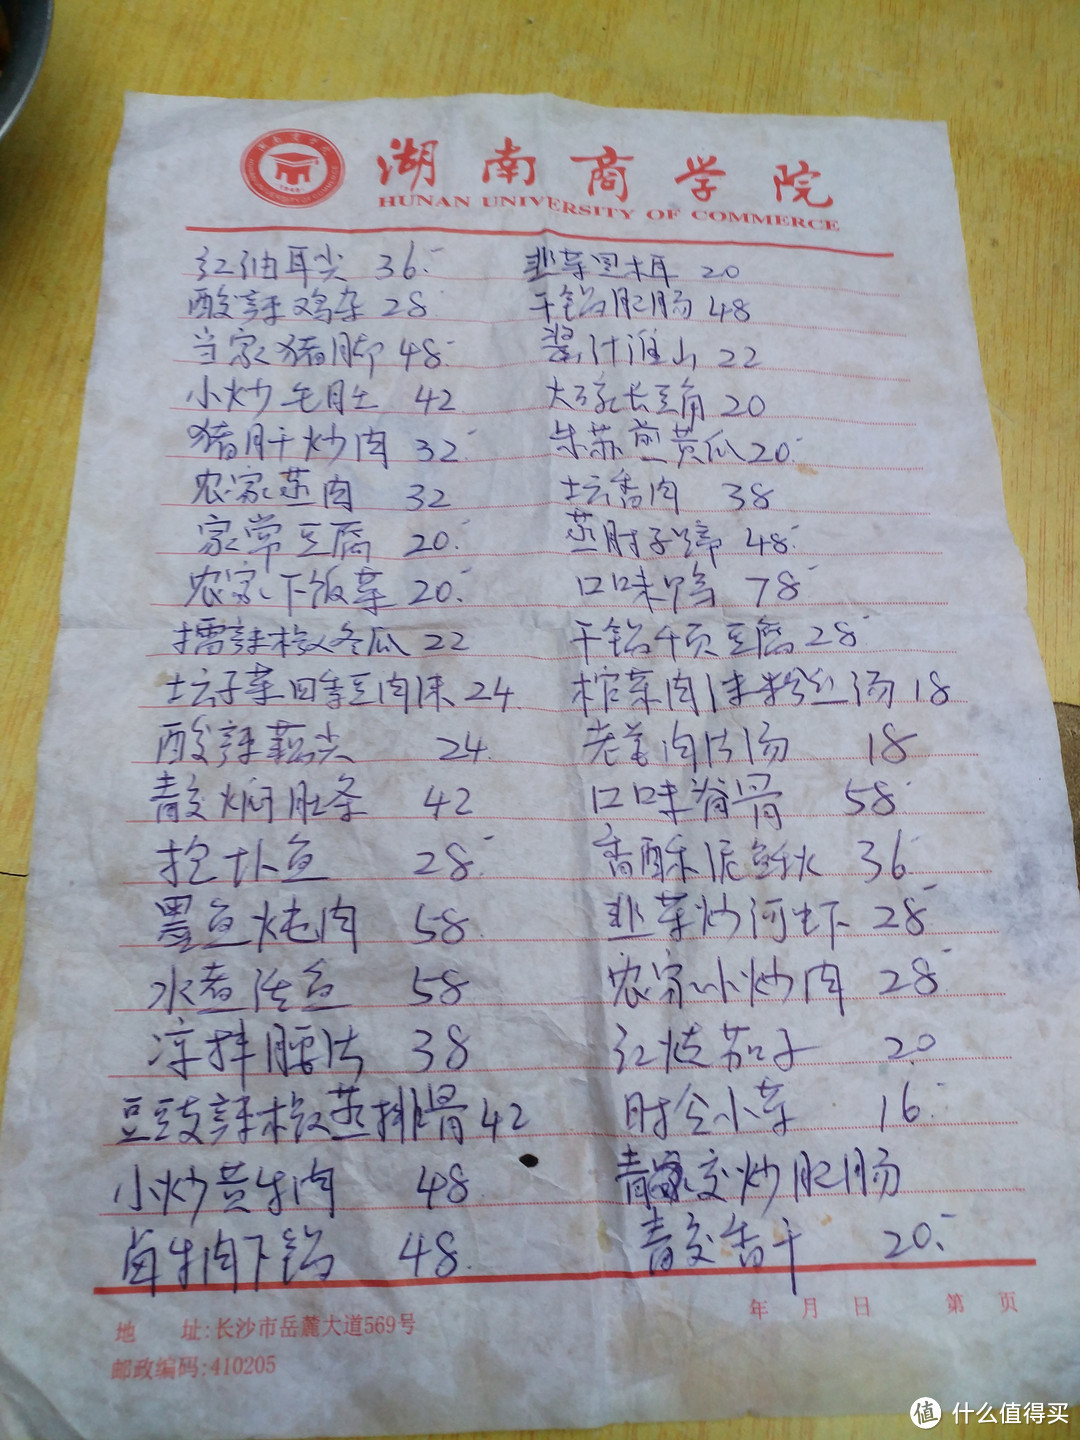 湖南商学院
HUNAN UNIVERSITY OF COMMERCE
红油耳尖 36.
韭菜围木耳 20
酸辣鸡杂 28
干锅肥肠 48
当家猪脚 48.
汁淮山 22
小炒毛肚 42
大碗长豆角 20
猪肝炒肉 32
朱苏煎黄瓜 20.
农家蒸肉 32
坛香肉 38
家常豆腐 20.
蒸肘子蹄 48.
农家下饭菜 20.
口味鸭 78
擂辣椒冬瓜 22
干锅千页豆腐 28
坛子菜四季豆肉沫 24
榨菜肉沫粉丝汤 18
酸辣藕尖 24
老姜肉片汤 18
青交焖肚条 42
口味脊骨 58
抱扑鱼 28.
香酥泥鳅 36
墨鱼炖肉 58
韭菜炒河虾 28
水煮活鱼 58
农家小炒肉 28
凉拌腰片 38
红烧茄子 20
豆豉辣椒蒸排骨 42
时令小菜 16.
小炒黄牛肉 48
青交炒肥肠
卤牛肉下锅 48
青交香干 20.
年 月 日 第 页
地 址:长沙市岳麓大道569号
邮政编码:410205
值 什么值得买